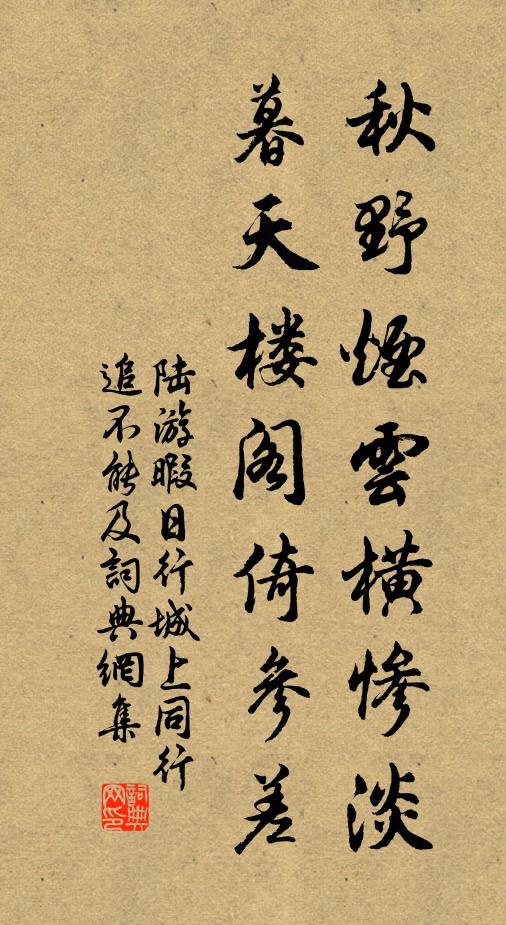 秋野煙雲橫慘淡
暮天楼阁倚參差
陆游暇日行城上同行
追不能及詞典網集
詞典
网印